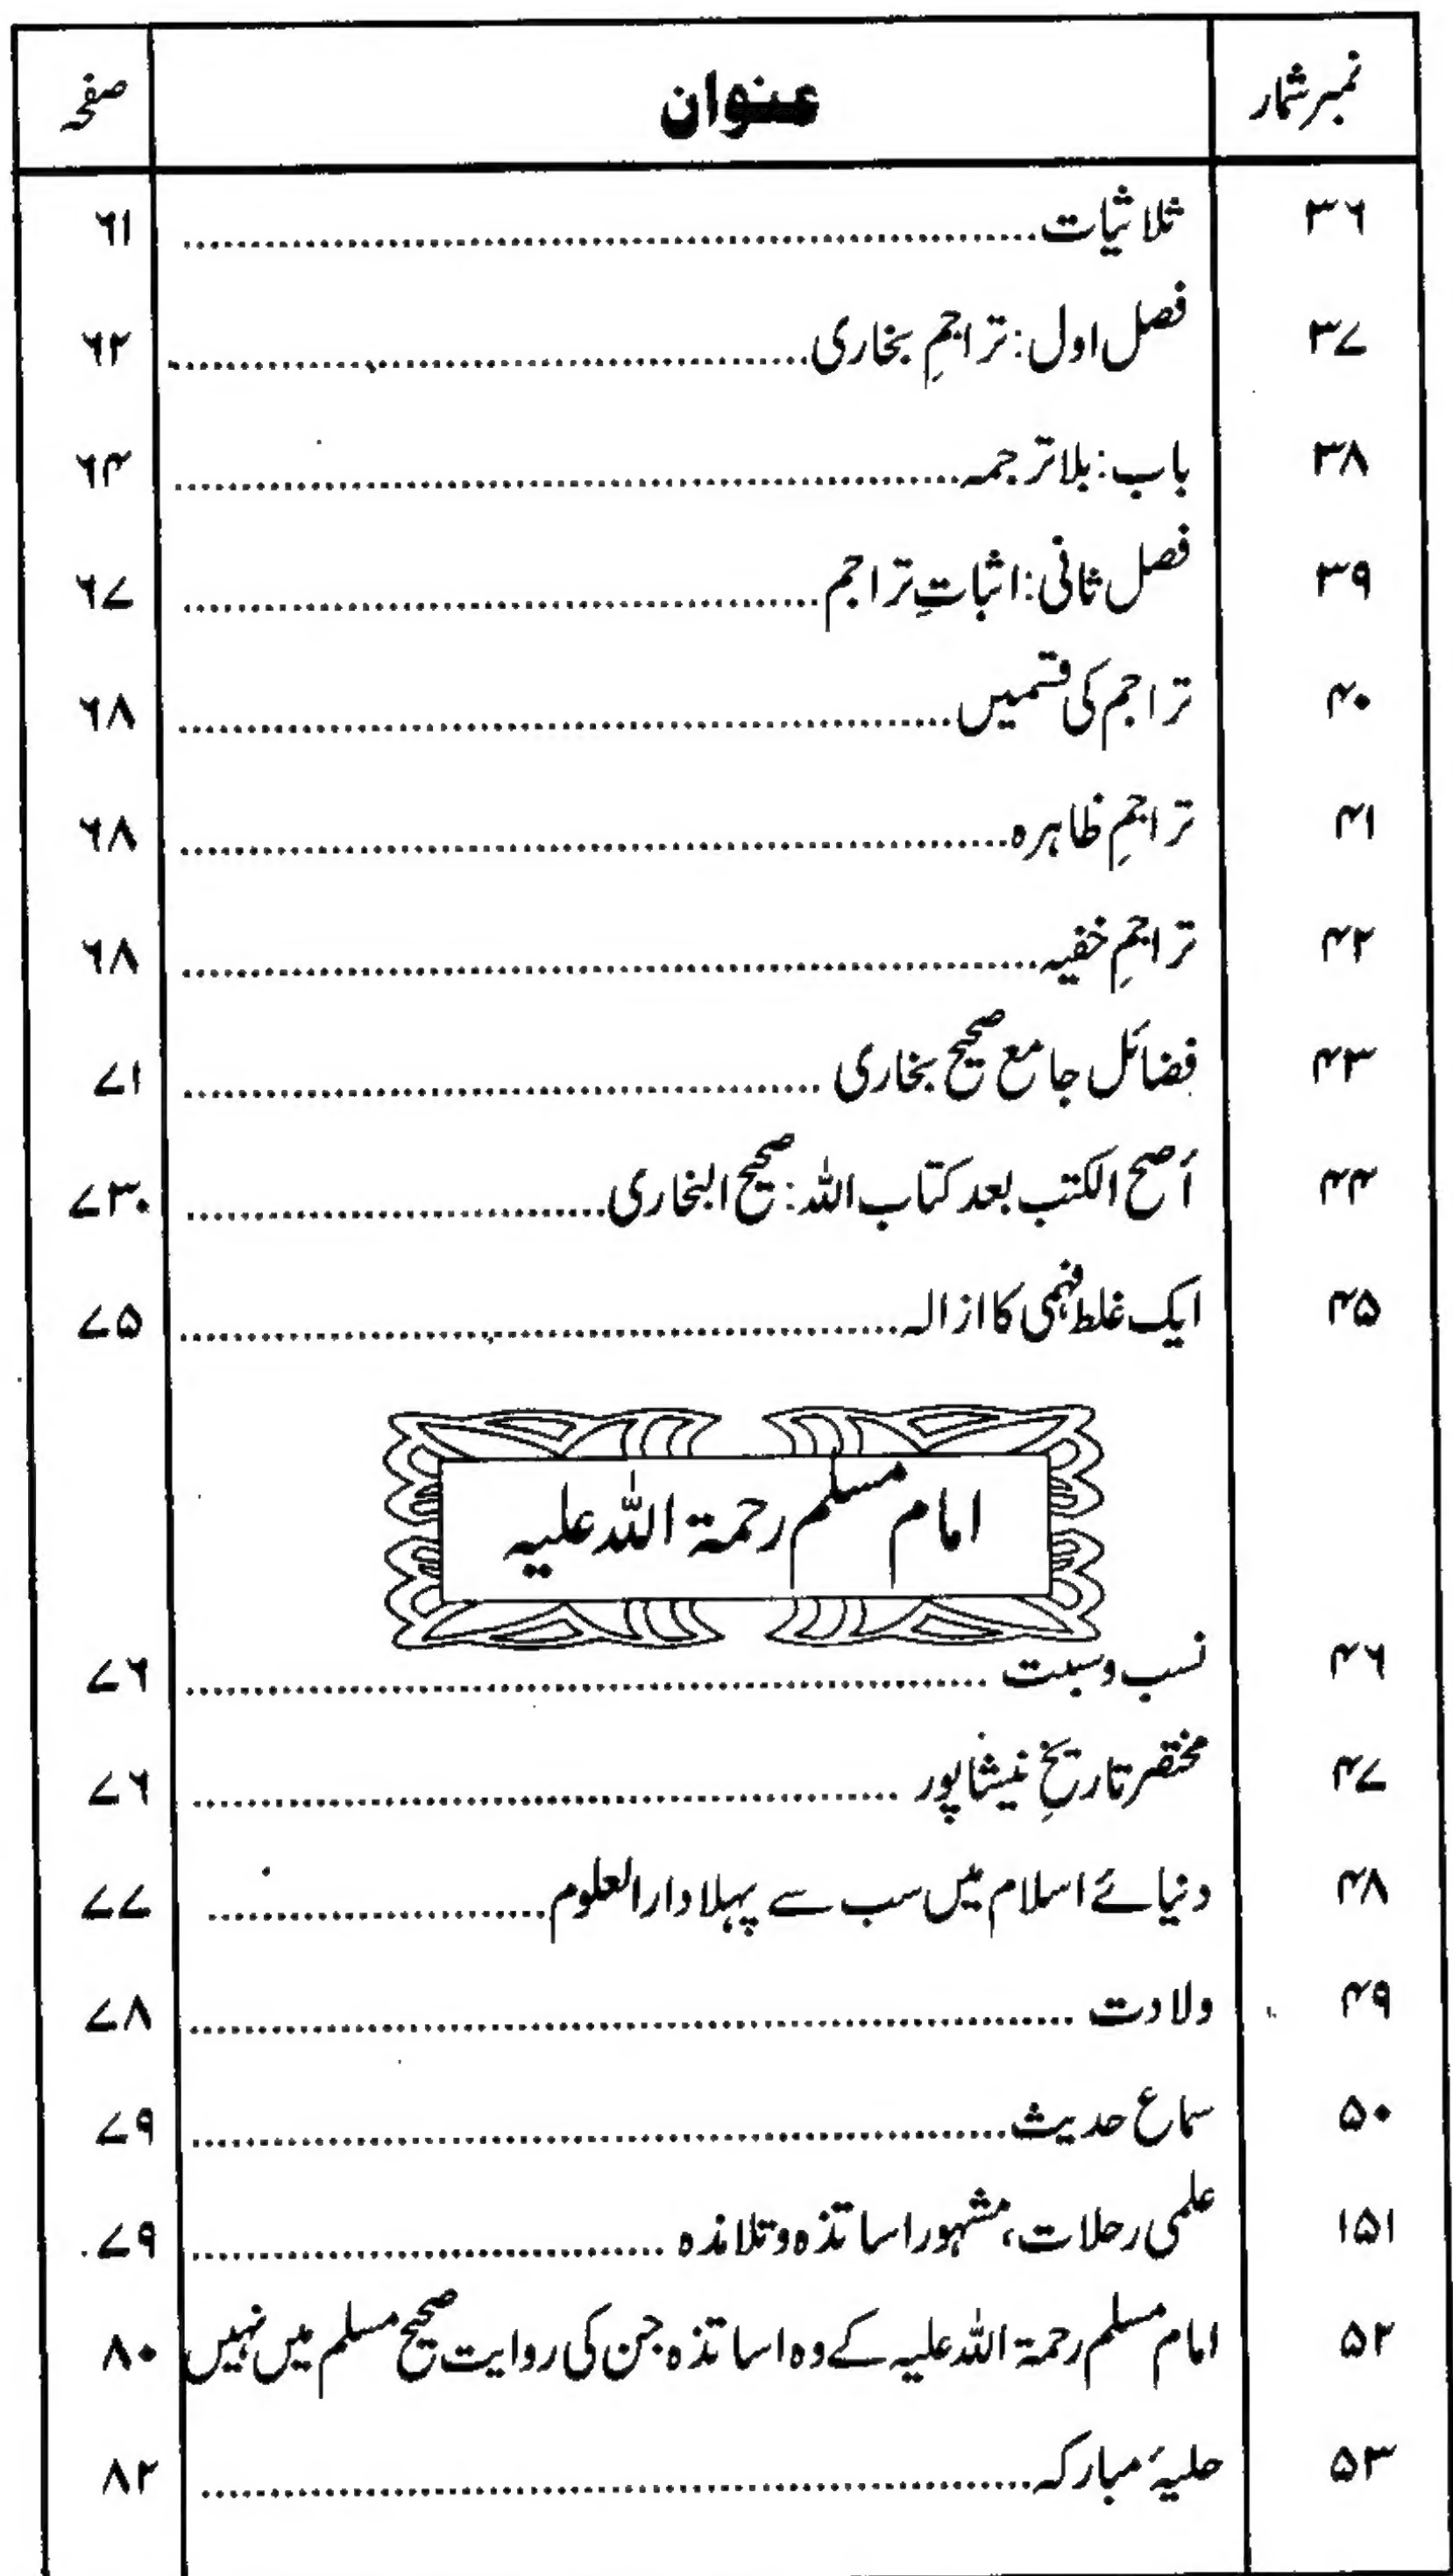 نمبر شمار عنوان صفحہ
۳۶ ثلاثیات ۶۱
۳۷ فصل اول: تراجمِ بخاری ۶۲
۳۸ باب: بلا ترجمہ ۶۴
۳۹ فصل ثانی: اثباتِ تراجم ۶۷
۴۰ تراجم کی قسمیں ۶۸
۴۱ تراجمِ ظاہرہ ۶۸
۴۲ تراجمِ خفیہ ۶۸
۴۳ فضائل جامع صحیح بخاری ۷۱
۴۴ أصح الکتب بعد کتاب اللہ: صحیح البخاری ۷۳۰
۴۵ ایک غلط فہمی کا ازالہ ۷۵
امام مسلم رحمۃ اللہ علیہ
۴۶ نسب و سبت ۷۶
۴۷ مختصر تاریخِ نیشاپور ۷۶
۴۸ دنیائے اسلام میں سب سے پہلا دارالعلوم ۷۷
۴۹ ولادت ۷۸
۵۰ سماع حدیث ۷۹
۱۵۱ علمی رحلات، مشہور اساتذہ و تلامذہ ۷۹
۵۲ امام مسلم رحمۃ اللہ علیہ کے وہ اساتذہ جن کی روایت صحیح مسلم میں نہیں ۸۰
۵۳ حلیۂ مبارکہ ۸۲